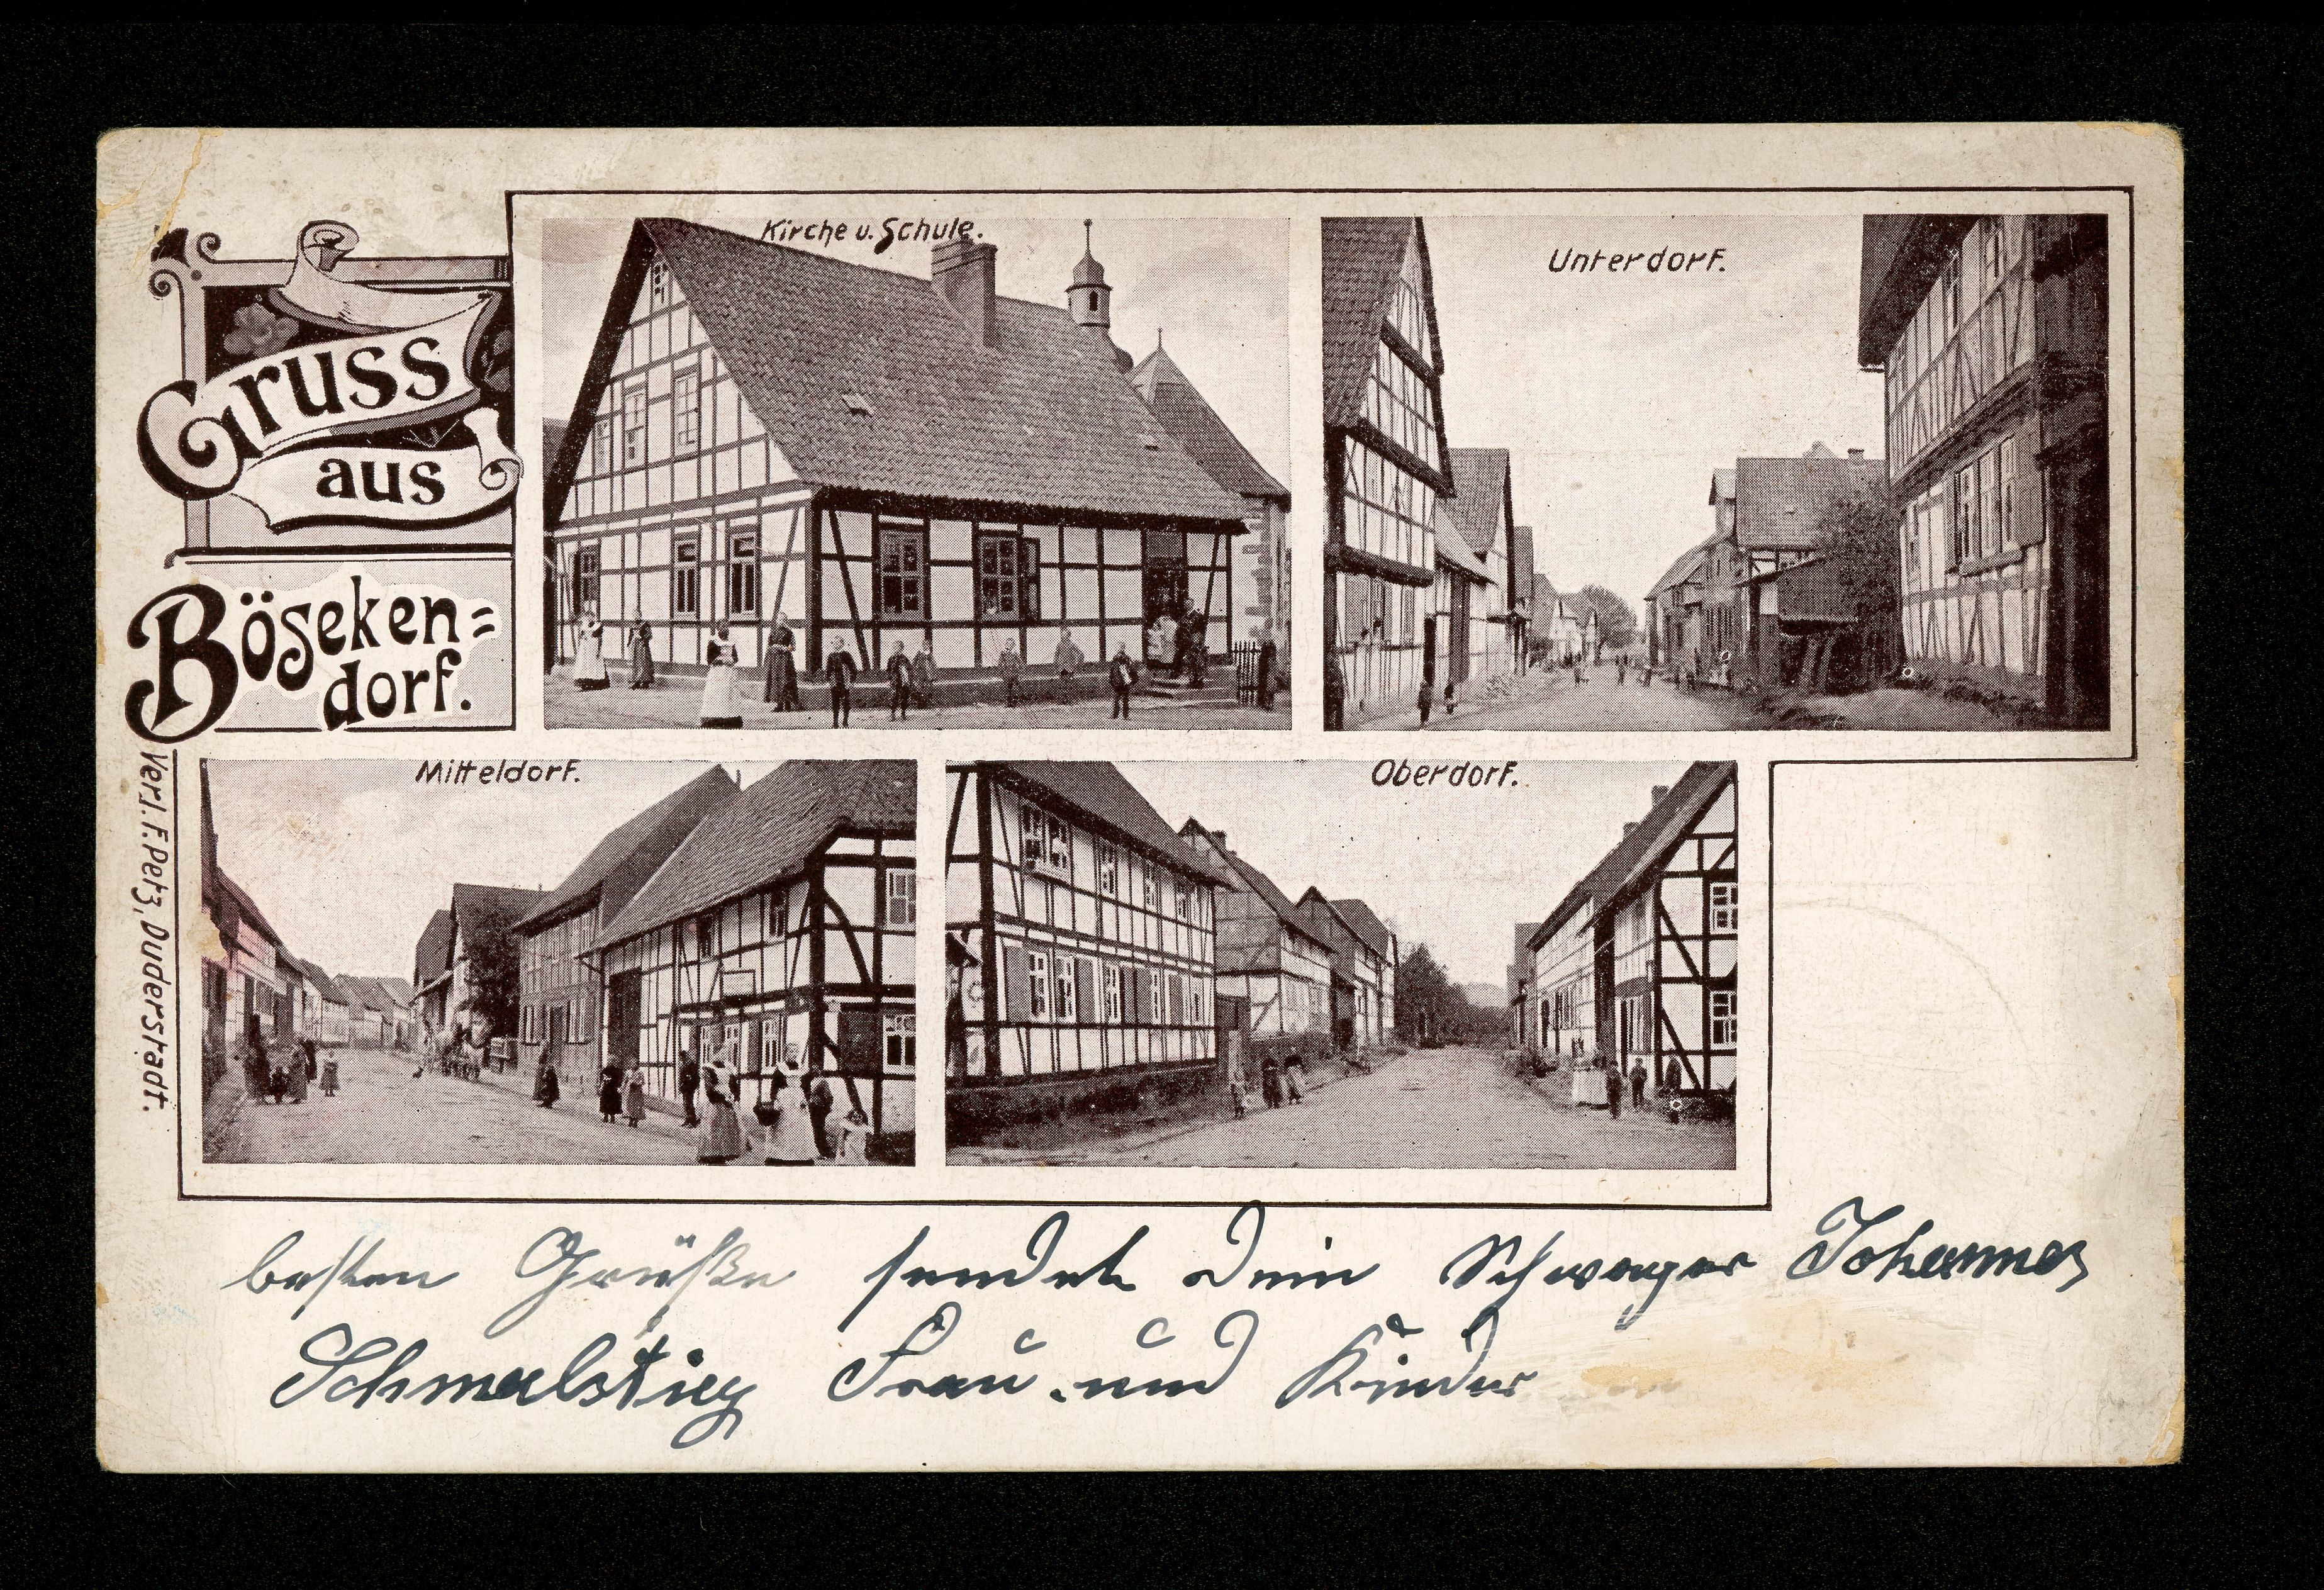 Gruss
aus
Böseken=
dorf.
Kirche u. Schule.
Unterdorf.
Mitteldorf.
Oberdorf.
Verl. F. Petz, Duderstadt.
besten Grüße sendet dein Schwager Johannes
Schmalstieg Frau und Kinder